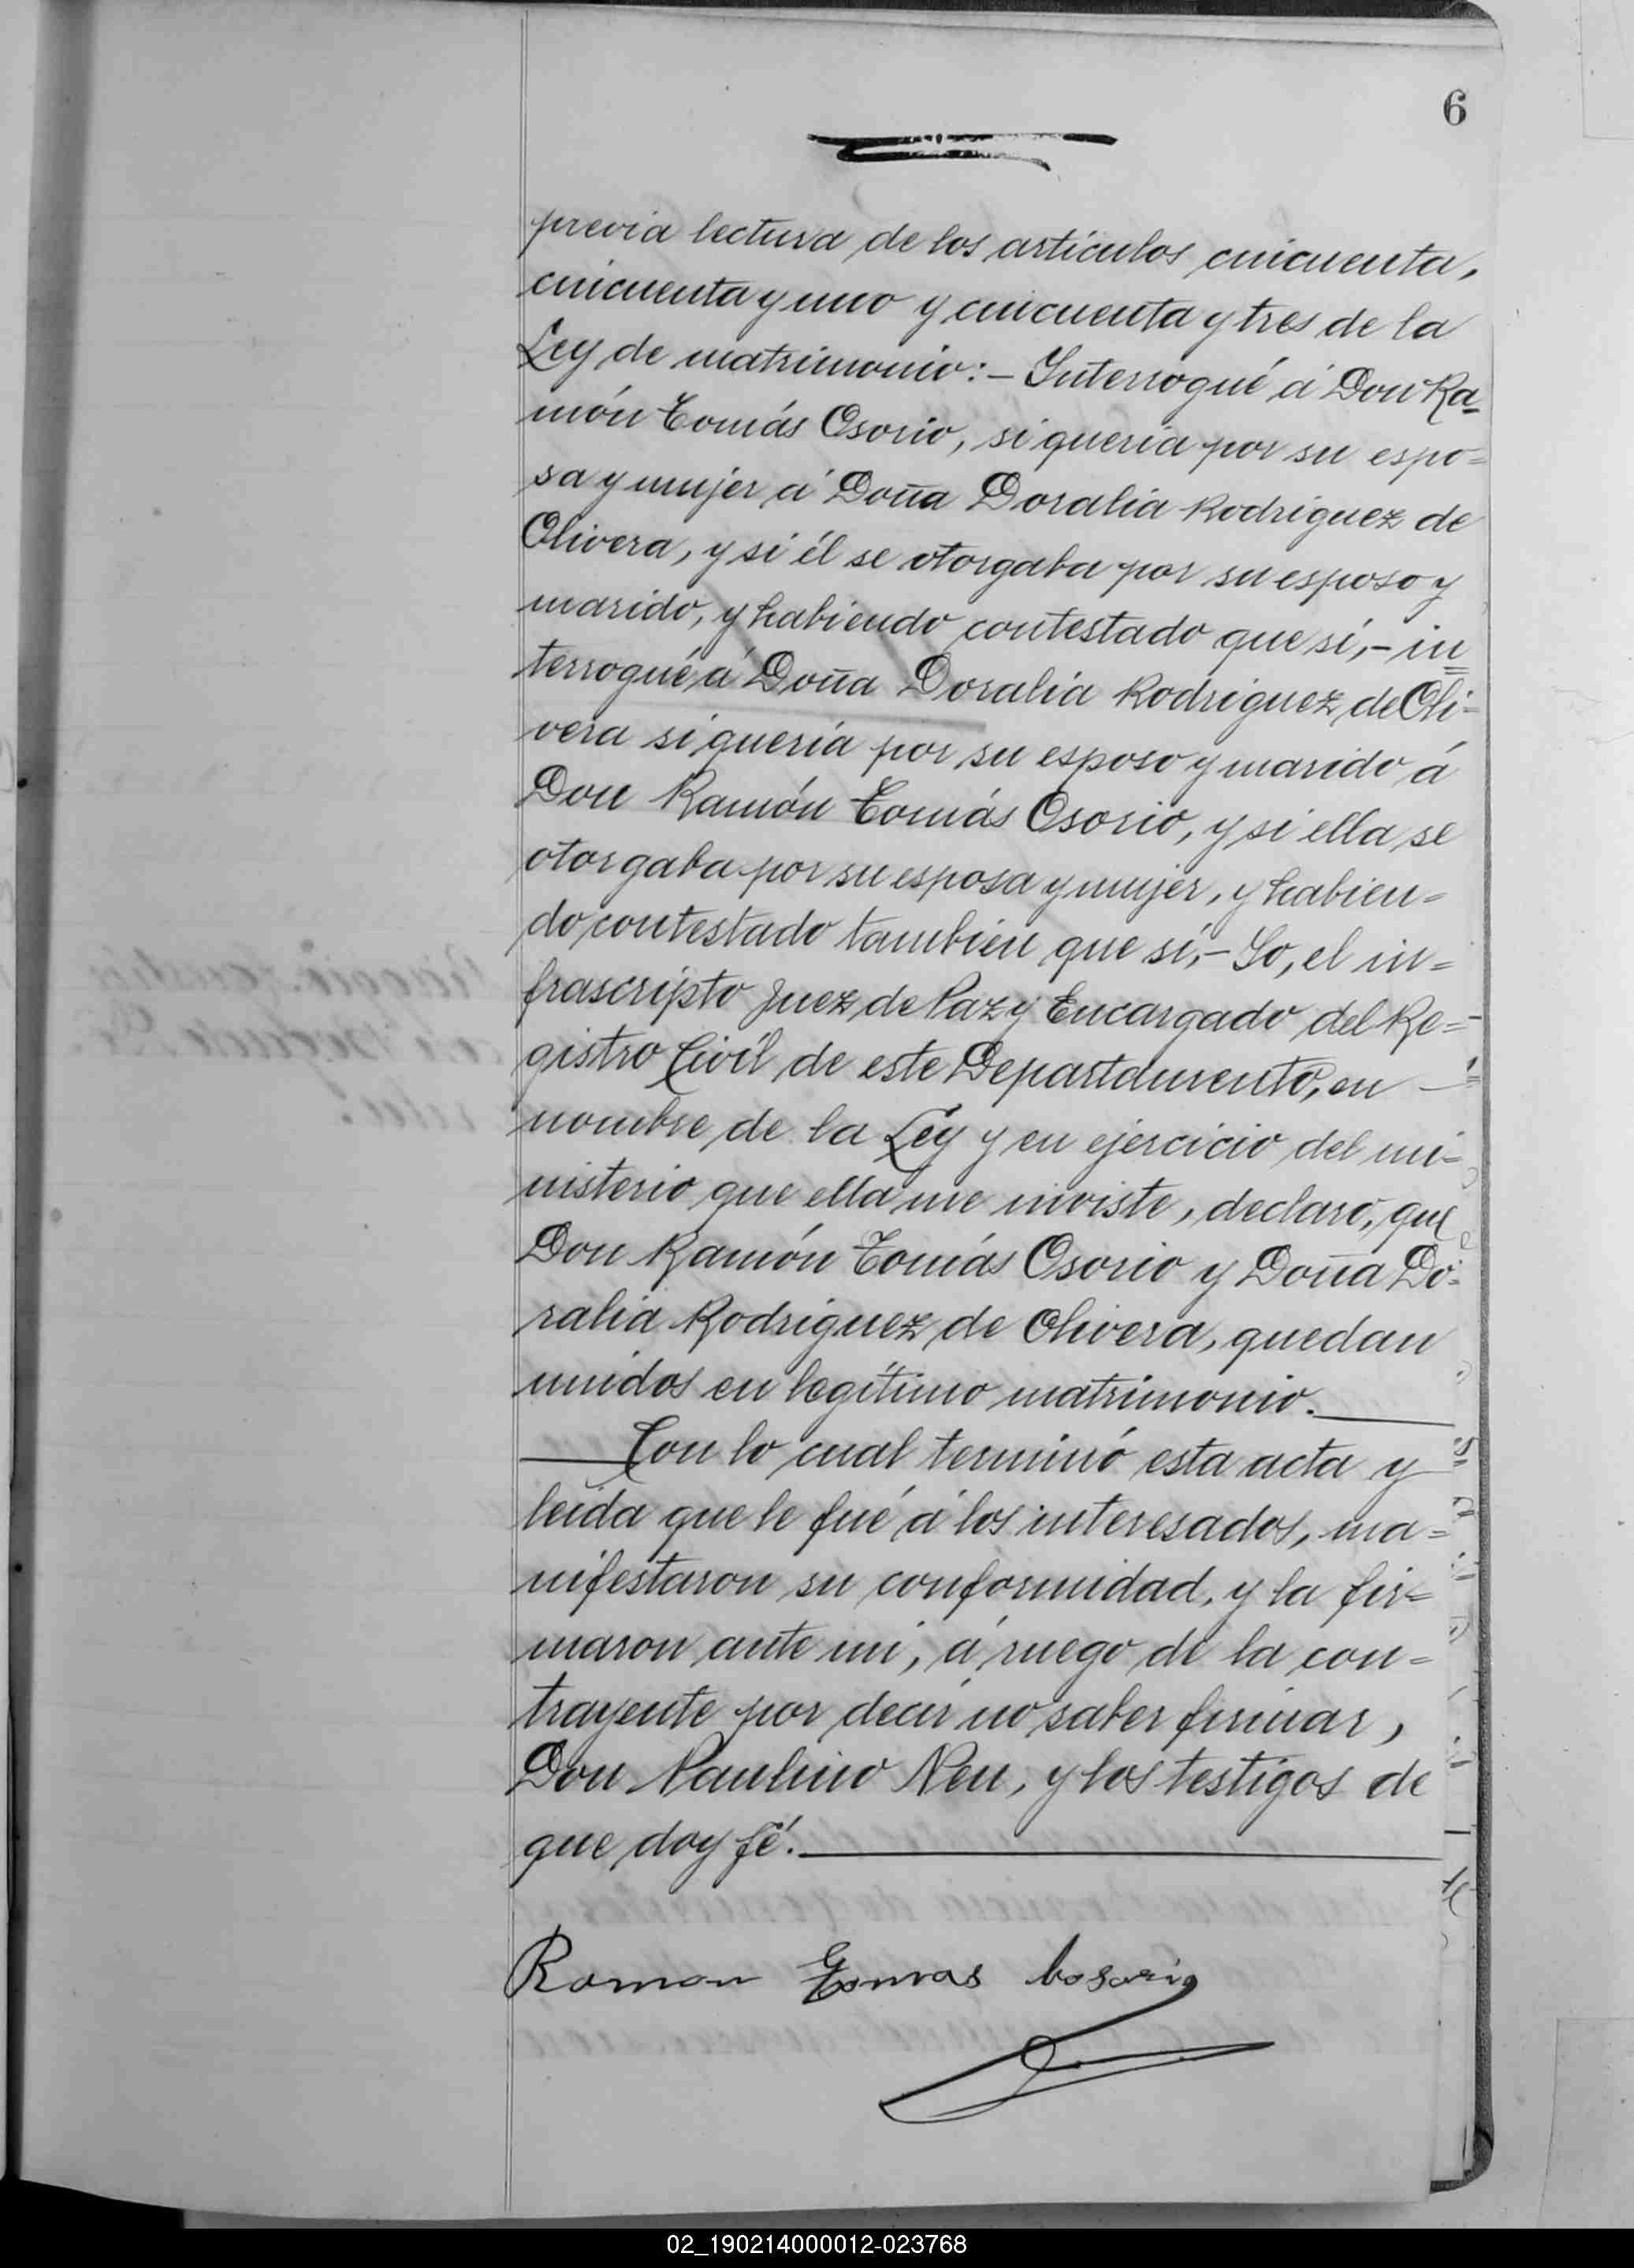 6
previa lectura de los artículos cincuenta,
cincuenta y uno y cincuenta y tres de la
Ley de matrimonio:- Interrogué á Don Ra-
món Tomás Osorio, si quería por su espo=
sa y mujer á Doña Doralia Rodriguez de
Olivera, y si él se otorgaba por su esposo y
marido, y habiendo contestado que sí,- in=
terrogué á Doña Doralia Rodriguez de Oli=
vera si quería por su esposo y marido á
Don Ramón Tomás Osorio, y si ella se
otorgaba por su esposa y mujer, y habien=
do contestado tambien que sí,- Yo, el in=
frascripto Juez de Paz y Encargado del Re=
gistro Civíl de este Departamento, en
nombre de la Ley y en ejercicio del mi=
nisterio que ella me inviste, declaro, que
Don Ramón Tomás Osorio y Doña Do=
ralia Rodriguez de Olivera, quedan
unidos en legítimo matrimonio.
Con lo cual terminó esta acta y
leída que le fué á los interesados, ma=
nifestaron su conformidad, y la fir=
maron ante mi, á ruego de la con=
trayente por decir no saber firmar,
Don Paulino Neu, y los testigos de
que doy fé.
Ramon Tomas Oosorio
02_190214000012-023768